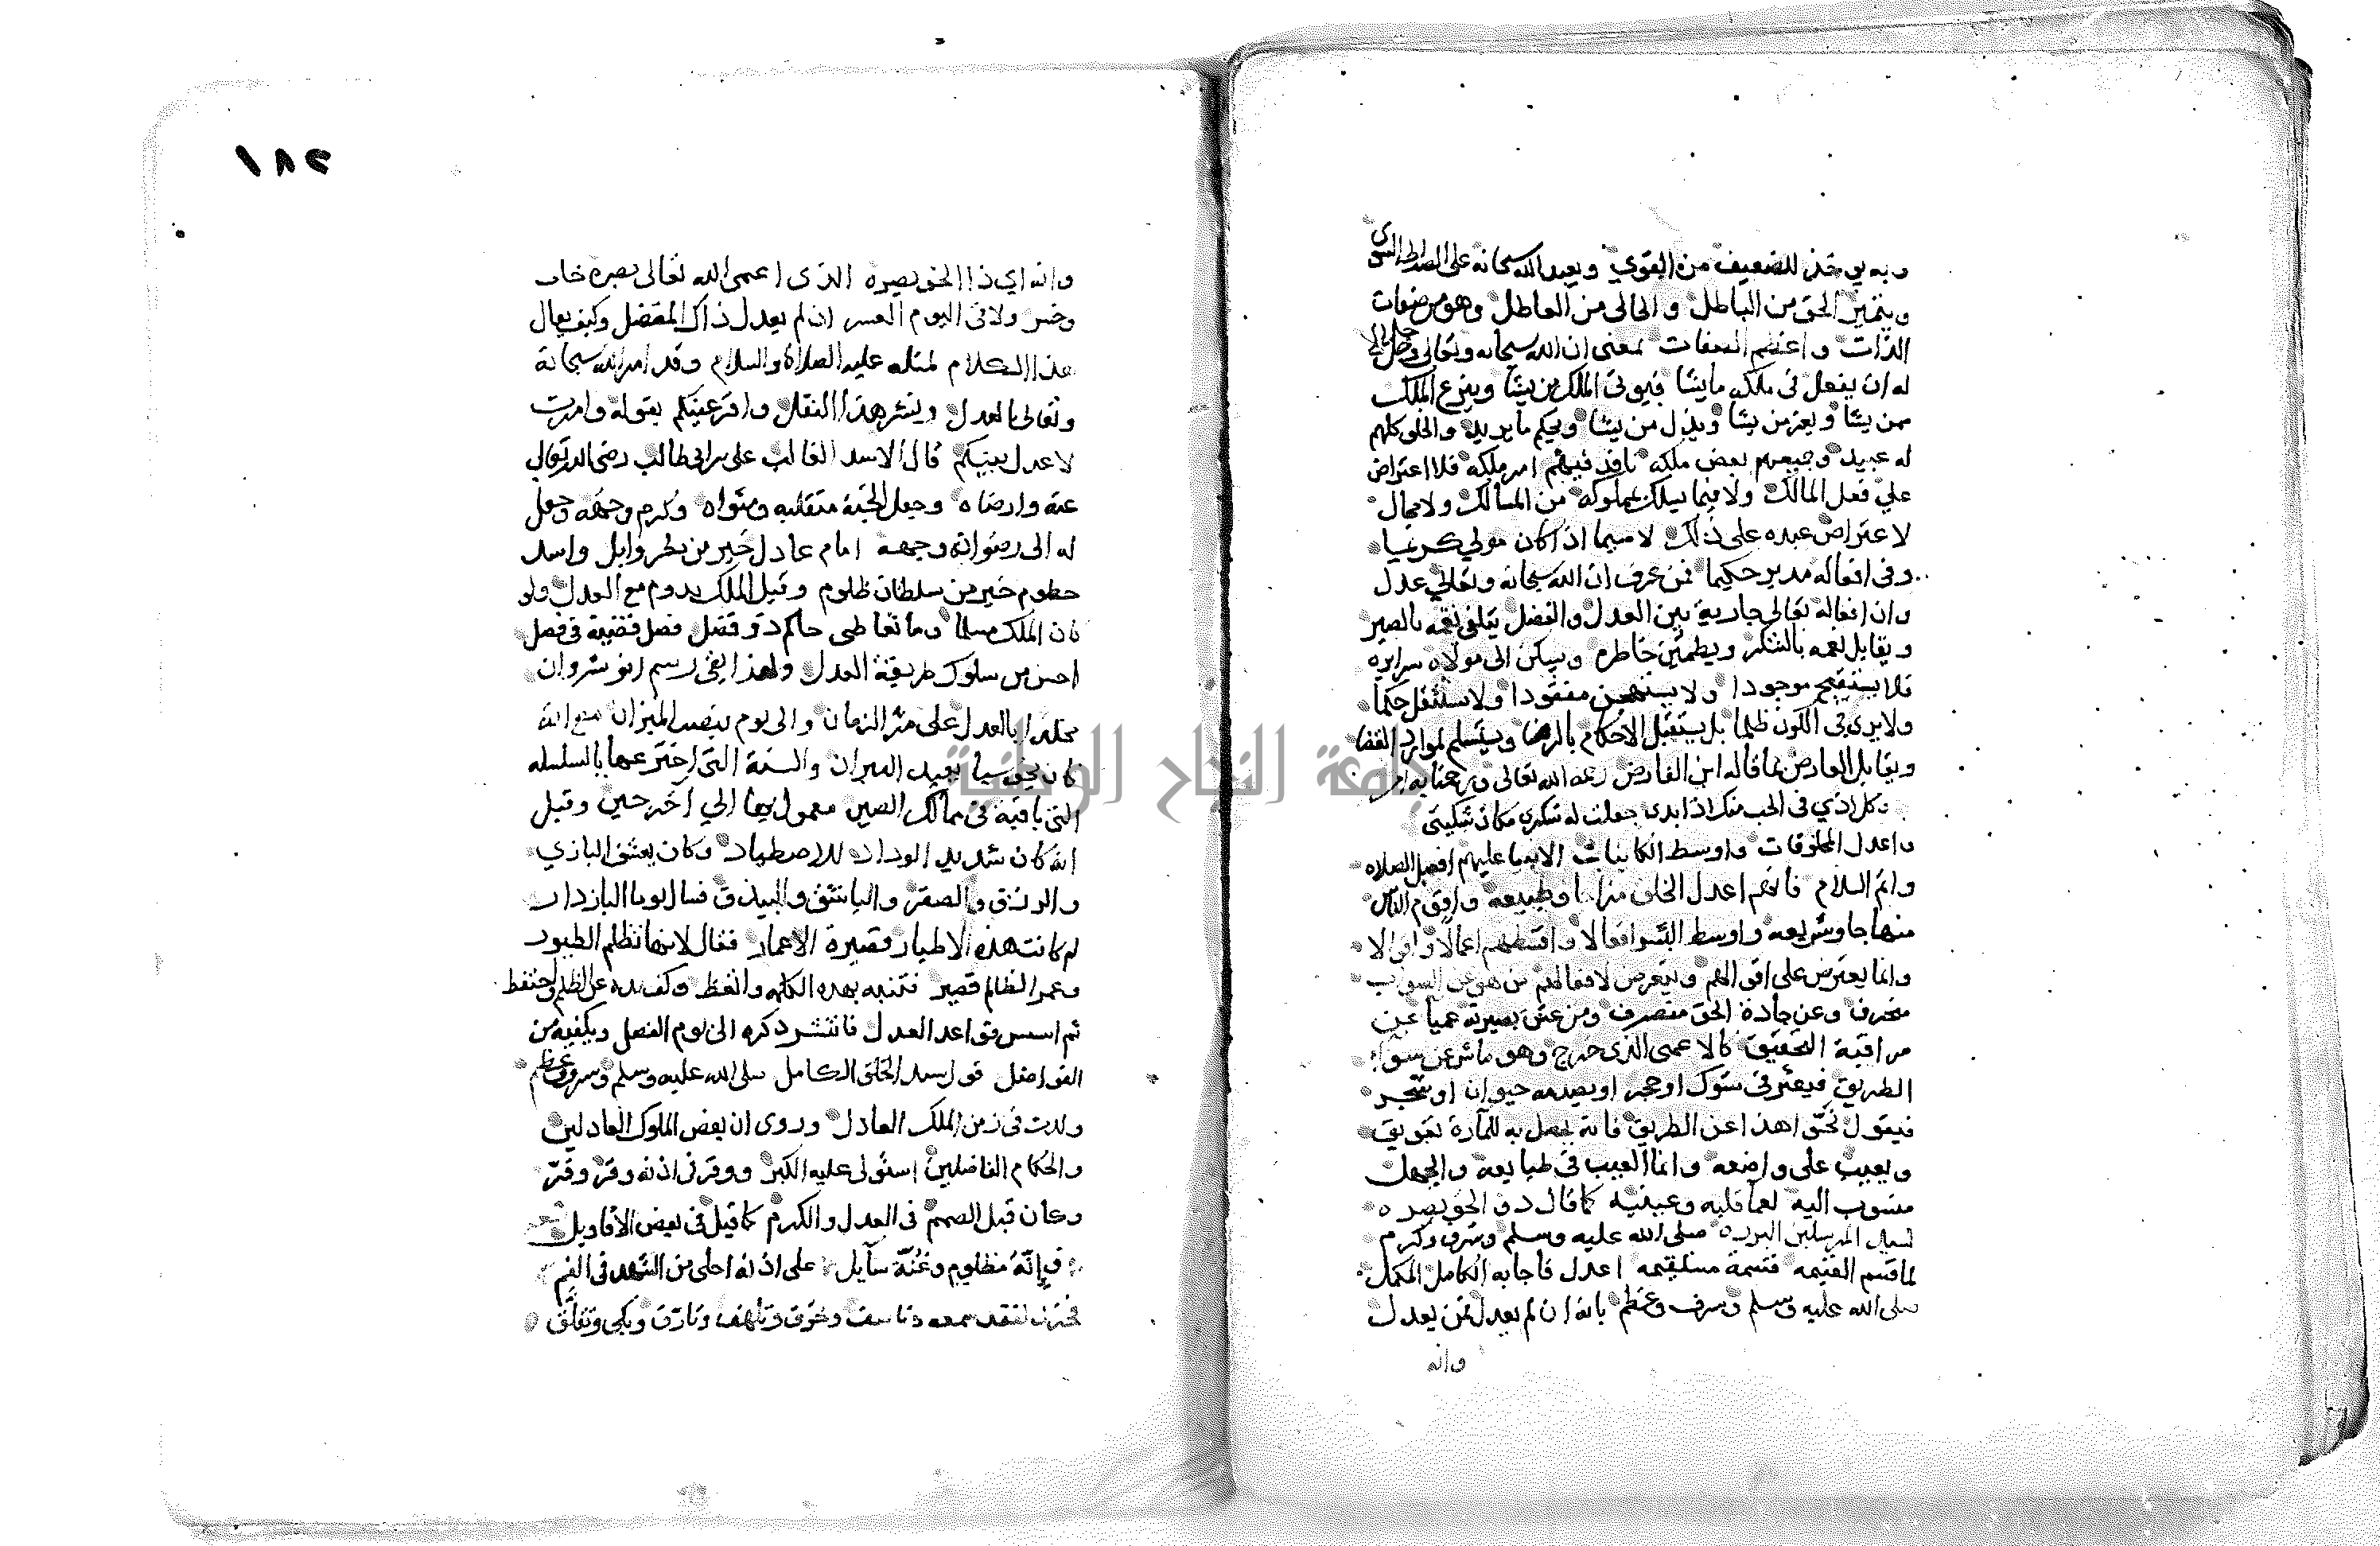 وبه يوخذ للضعيف من القوي ويعبد الله سبحانه على الصراط السوي
ويتميز الحق من الباطل والحالي من العاطل وهو من صفات
الذات واعظم الصفات بمعنى ان الله سبحانه وتعالى
له ان يفعل في ملكه ما يشا فيوتى الملك من يشا وينزع الملك
ممن يشا ويعز من يشا ويذل من يشا ويحكم ما يريد والخلق كلهم
له عبيد وجميعهم بعض ملكه نافذ فيهم امر ملكه فلا اعتراض
علي فعل المالك ولا فيما يسلك بمملوكه من المسالك ولا مجال
لاعتراض عبده على ذلك لا سيما اذا كان مولي كريما
وفى افعاله مدبر حكيما فمن عرف ان الله سبحانه وتعالي عدل
وان افعاله تعالي جارية بين العدل والفضل يتلقى نقمه بالصبر
ويقابل نعمه بالشكر ويطمئن خاطره ويسكن الى مولاه سرايره
فلا يستقبح موجودا ولا يستهجن مفقودا ولا يستثقل حكما
ولا يرى في الكون ظلما بل يستقبل الاحكام بالرضا ويستسلم لموارد القضا
ويقابل العارض بما قاله ابن الفارض رحمه الله تعالى
وكل اذى في الحب منك اذا بدى جعلت له شكري مكان شكيتى
واعدل المخلوقات واوسط الكاينات الانبيا عليهم افضل الصلاه
واتم السلام فانهم اعدل الخلق مزاجا وطبيعه واقوم الناس
منهاجا وشريعه واوسط البشر افعالا واقسطهم اعمالا واقوالا
وانما يعترض على اقوالهم ويتعرض لافعالهم من هو عن الصواب
منحرف وعن جادة الحق منصرف ومن عين بصيرته عميا عن
مراقبة التحقيق كالاعمى الذى خرج وهو ماش عن سوآء
الطريق فيعثر فى شوك او حجر او يصدمه حيوان او شجر
فيقول نحوا هذا عن الطريق فانه يحصل به للمارة تعويق
ويعيب على واضعه وانما العيب فى طبايعه والجهل
منسوب اليه لعما قلبه وعينيه كما قال ذو الخويصره
لسيد المرسلين البرره صلى الله عليه وسلم وشرف وكرم
لما قسم الغنيمه قسمة مستقيمه اعدل فاجابه الكامل المكمل
صلى الله عليه وسلم وشرف وعظم بانه ان لم يعدل فمن يعدل
وانه
١٨٢
وانه اي ذا الخويصره الذى اعمى الله تعالى بصره خاب
وخسر ولاقى اليوم العسر ان لم يعدل ذاك المفضل وكيف يقال
هذا الكلام لمثله عليه الصلاة والسلام وقد امر الله سبحانه
وتعالى بالعدل وينشر هذا النقل واقر عينكم بقوله وامرت
لاعدل بينكم قال الاسد الغالب على بن ابى طالب رضى الله تعالى
عنه وارضاه وجعل الجنة متقلبه ومثواه وكرم وجهه وجعل
له الى رضوانه وجهه امام عادل خير من مطر وابل واسد
حطوم خير من سلطان ظلوم وقيل الملك يدوم مع العدل ولو
كان الملك مسلما وما تعاطى حاكم ذو فضل فصل قضية فى فصل
احسن من سلوك طريقة العدل ولهذا بقى رسم انوشروان
مخلدا بالعدل على مر الزمان والى يوم ينصب الميزان مع انه
كان مجوسيا يعبد النيران والسنة التى اخترعها بالسلسله
التى باقية في ممالك الصين معمول بها الي آخر حين وقيل
انه كان شديد الوداد للاصطياد وكان يعشق البازي
والزرق والصقر والباشق والبيذق فسال يوما البازدار
لم كانت هذه الاطيار قصيرة الاعمار فقال لانها تظلم الطيور
وعمر الظالم قصير فتنبه بهده الكلمه واتعظ وكف يده عن الظلم واحتفظ
ثم اسس قواعد العدل فانتشر ذكره الى يوم الفصل ويكفيه من
الفواضل قول سيد الخلق الكامل صلى الله عليه وسلم وشرف وعظم
ولدت فى زمن الملك العادل وروى ان بعض الملوك العادلين
والحكام الفاضلين استولى عليه الكبر ووقر فى اذنه وقر وقر
وكان قبل الصمم فى العدل والكرم كما قيل فى بعض الأقاويل
فإنّه مظلوم وغنّة سآيل على اذنه احلى من الشهد فى الفم
فحزن لفقد سمعه وتاسف وتحرق وتلهف وتارق وبكى وتقلّق